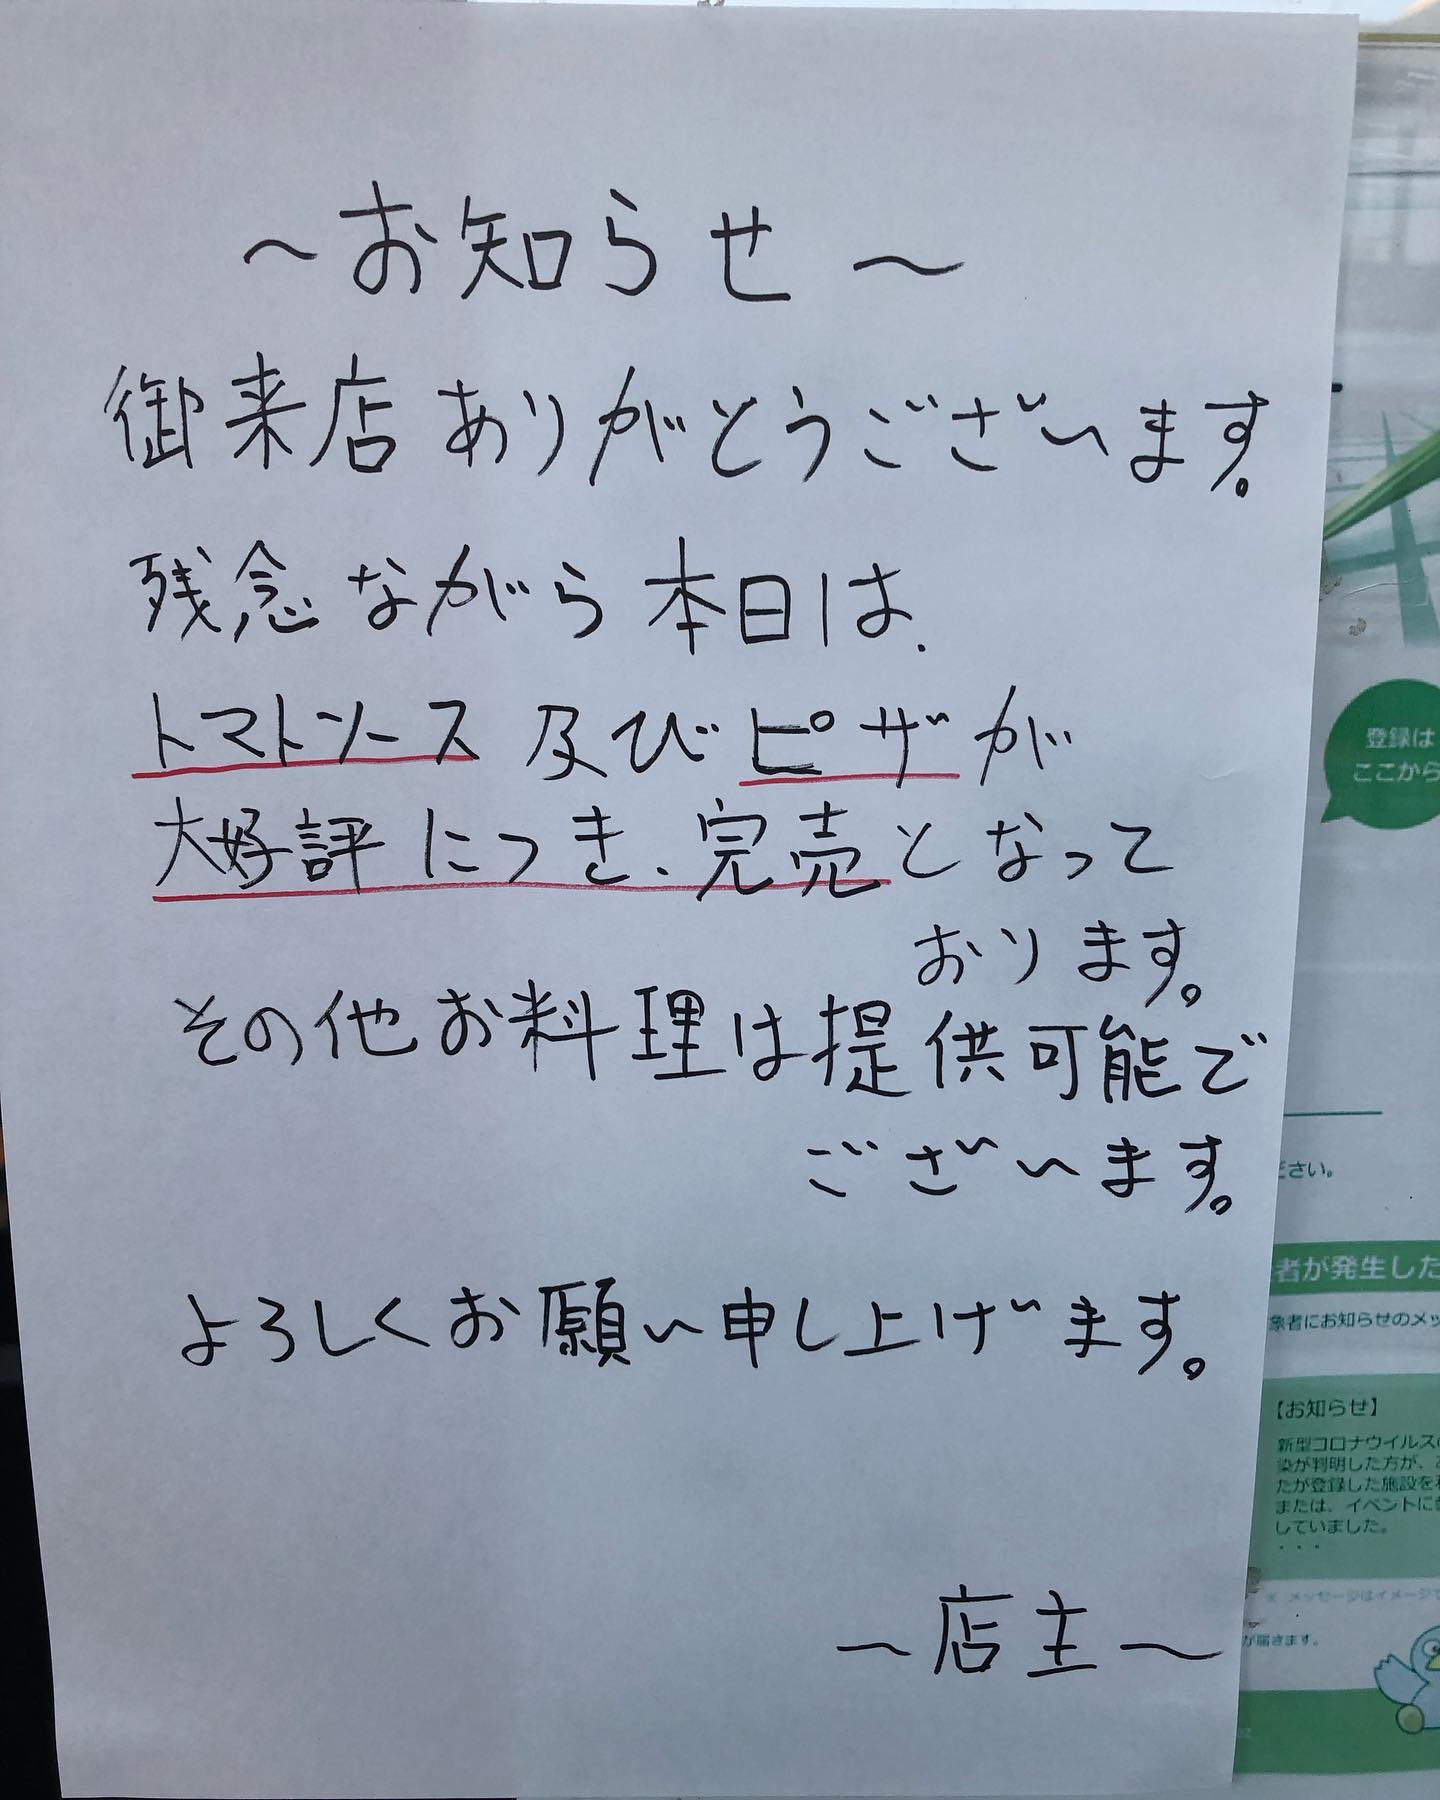 ～お知らせ～
御来店ありがとうございます。
残念ながら本日は、
トマトソース及びピザが
大好評につき、完売となって
おります。
その他お料理は提供可能で
ございます。
よろしくお願い申し上げます。
～店主～
登録は
ここから
ださい。
者が発生した
象者にお知らせのメッ
【お知らせ】
新型コロナウイルスの
染が判明した方が、
たが登録した施設を
または、イベントに
していました。
・・・
※ メッセージはイメージで
が届きます。